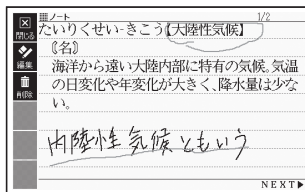 閉じる
ノート
1/2
たいりくせい-きこう【大陸性気候】
編集
〘名〙
海洋から遠い大陸内部に特有の気候。気温
の日変化や年変化が大きく、降水量は少な
い。
削除
内陸性気候ともいう
NEXT▶